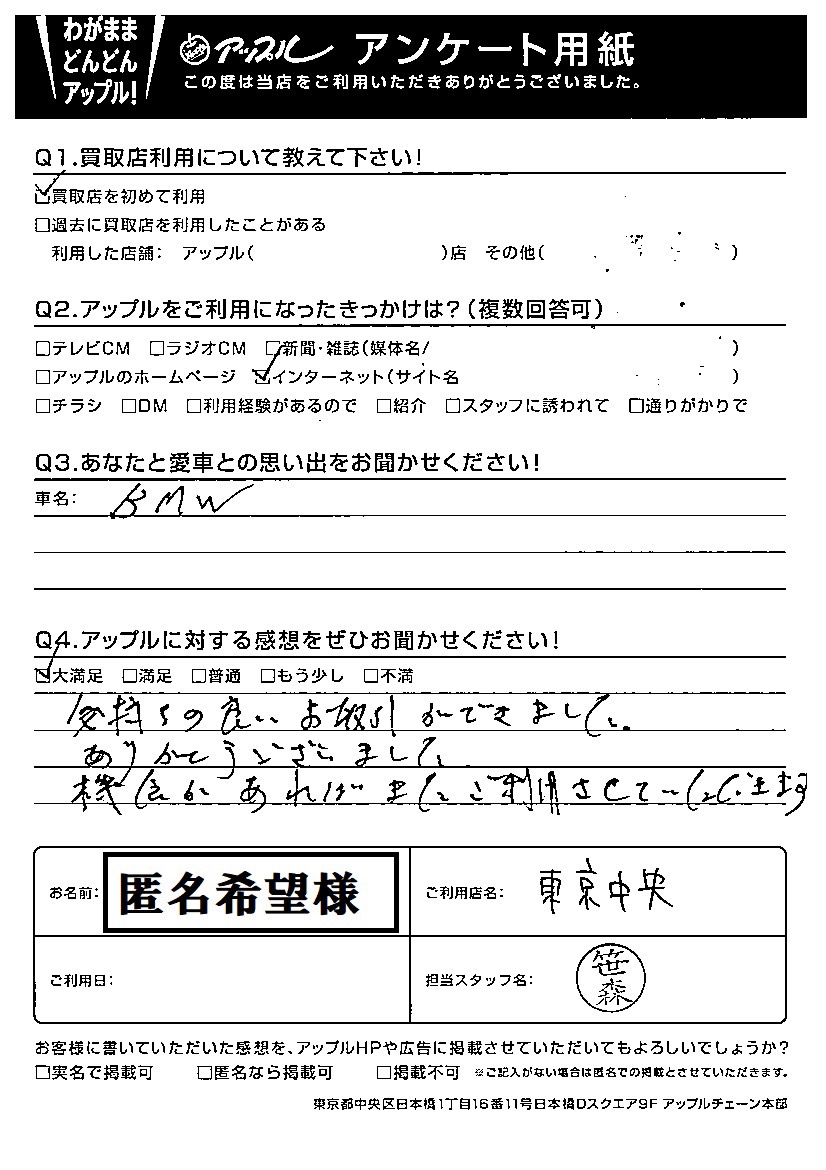 わがまま
どんどん
アップル!
アップル アンケート用紙
この度は当店をご利用いただきありがとうございました。
Q1.買取店利用について教えて下さい!
☑買取店を初めて利用
□過去に買取店を利用したことがある
利用した店舗: アップル( )店 その他( )
Q2.アップルをご利用になったきっかけは?(複数回答可)
□テレビCM □ラジオCM □新聞・雑誌(媒体名/ )
□アップルのホームページ ☑インターネット(サイト名 )
□チラシ □DM □利用経験があるので □紹介 □スタッフに誘われて □通りがかりで
Q3.あなたと愛車との思い出をお聞かせください!
車名: BMW
Q4.アップルに対する感想をぜひお聞かせください!
☑大満足 □満足 □普通 □もう少し □不満
気持ちの良いお取引ができました。
ありがとうございました
機会があればまたご利用させていただきます
お名前: 匿名希望様 ご利用店名: 東京中央
ご利用日: 担当スタッフ名: 笹森
お客様に書いていただいた感想を、アップルHPや広告に掲載させていただいてもよろしいでしょうか?
□実名で掲載可 □匿名なら掲載可 □掲載不可 ※ご記入がない場合は匿名での掲載とさせていただきます。
東京都中央区日本橋1丁目16番11号日本橋Dスクエア9F アップルチェーン本部